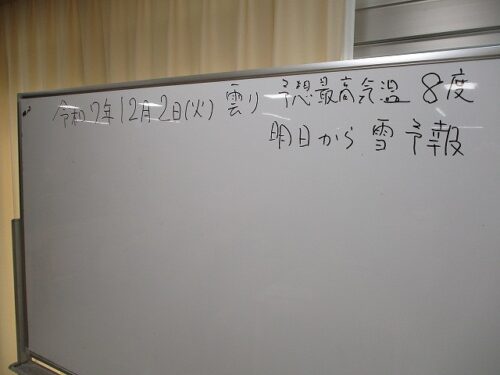 令和7年12月2日(火) 雲り 予想最高気温 8度
明日から雪予報